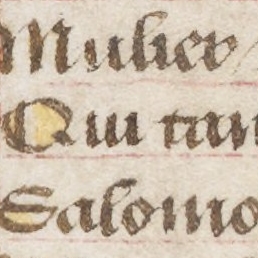 Mulier
Qui tan
Salomo